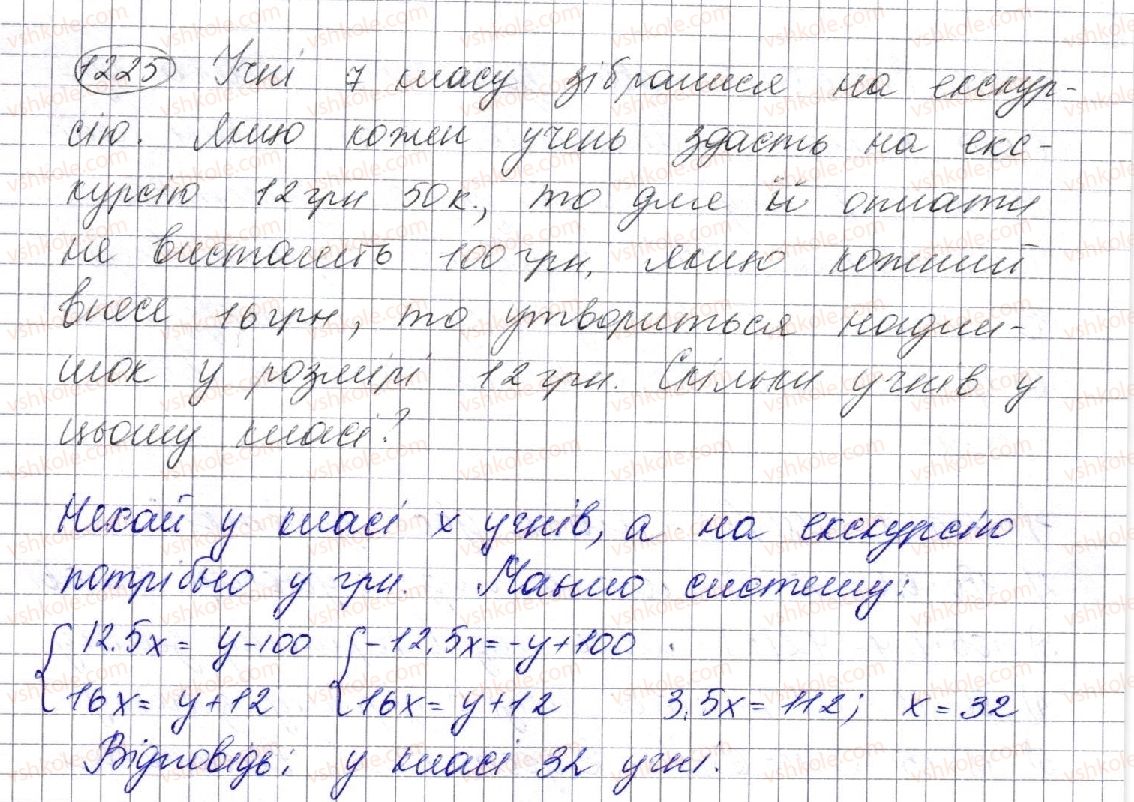 1225 Учні 7 класу зібралися на екскур-
сію. Якщо кожен учень здасть на екс-
курсію 12 грн 50 к., то для її оплати
не вистачить 100 грн, якщо кожний
внесе 16 грн, то утвориться надли-
шок у розмірі 12 грн. Скільки учнів у
цьому класі?
Нехай у класі x учнів, а на екскурсію
потрібно y грн. Маємо систему:
{ 12,5x = y-100 { -12,5x = -y+100
16x = y+12 16x = y+12 3,5x = 112; x = 32
Відповідь: у класі 32 учні.